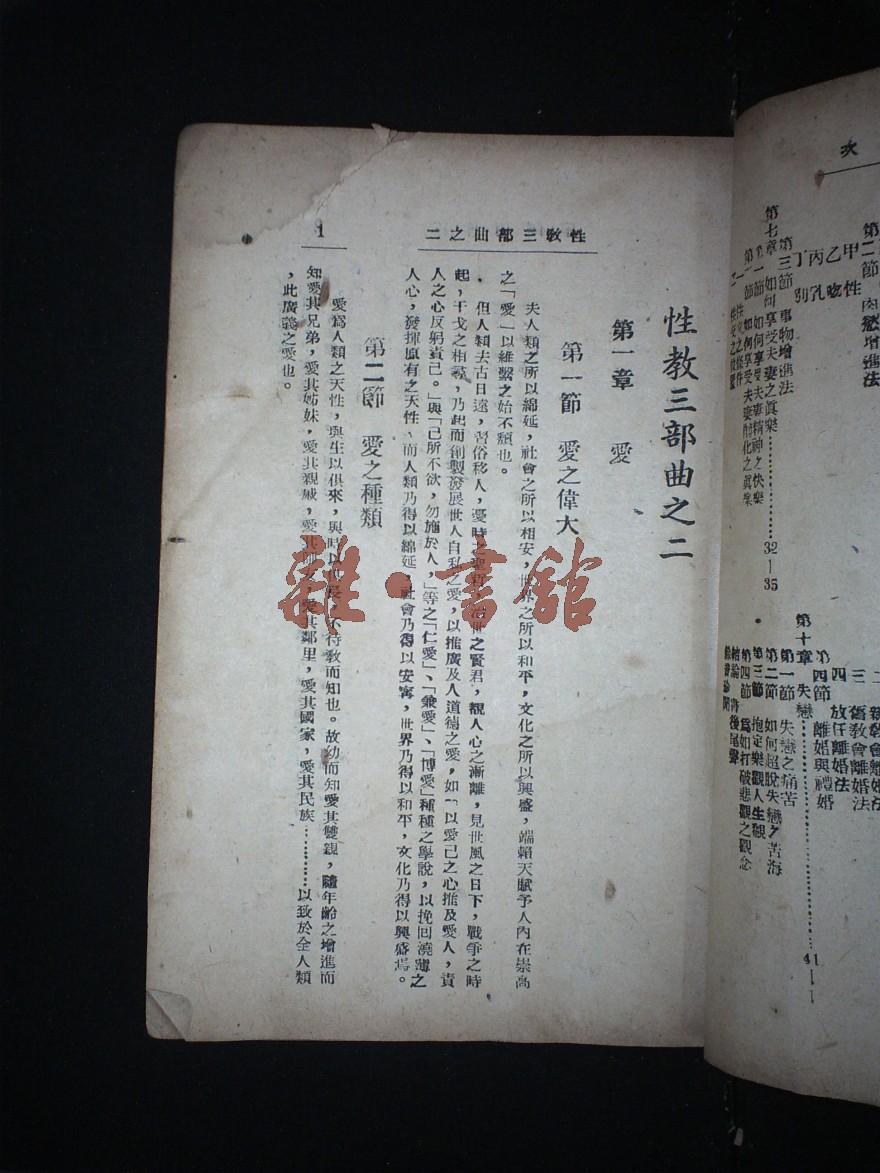 次
第二節 肉慾增進法
甲 性
乙 吻
丙 乳
丁 別
第三節 事物增進法
第七章 如何享受夫妻之眞樂……32—35
第一節 如何享受夫妻精神之快樂
第二節 如何享受夫妻醇化之眞樂
三 舊敎會離婚法
四 放任離婚法
第四節 離婚與禮婚
第十章 失戀……41—
第一節 失戀之痛苦
第二節 如何超脫失戀之苦海
第三節 抱定樂觀人生觀
第四節 爲如打破悲觀之觀念
結論 書後尾聲
性教三部曲之二
性教三部曲之二
第一章 愛
第一節 愛之偉大
夫人類之所以綿延,社會之所以相安,世界之所以和平,文化之所以興盛,端賴天賦予人內在崇高
之「愛」以維繫之始不頹也。
但人類去古日遠,習俗移人,憂時之聖哲,治世之賢君,覩人心之漸離,見世風之日下,戰爭之時
起,干戈之相尋,乃起而創製發展世人自私之愛,以推廣及人道德之愛,如「以愛己之心推及愛人,責
人之心反躬責己。」與「己所不欲,勿施於人,」等之「仁愛」、「兼愛」、「博愛」種種之學說,以挽回澆薄之
人心,發揮原有之天性、而人類乃得以綿延,社會乃得以安寧,世界乃得以和平,文化乃得以興盛焉。
第二節 愛之種類
愛爲人類之天性,與生以俱來,與時以俱長,不待敎而知也。故幼而知愛其雙親,隨年齡之增進而
知愛其兄弟,愛其姊妹,愛其親戚,愛其師友,愛其鄰里,愛其國家,愛其民族…………以致於全人類
,此廣義之愛也。
1
雜·書館